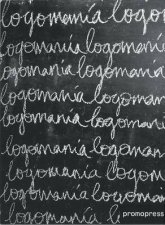 logomanía logo
logomanía logomaní
logomanía logomaní
logomanía logomaní
logomanía logomaní
logomanía logoman
logomanía logoman
logomanía logoman
logomanía l
promopress